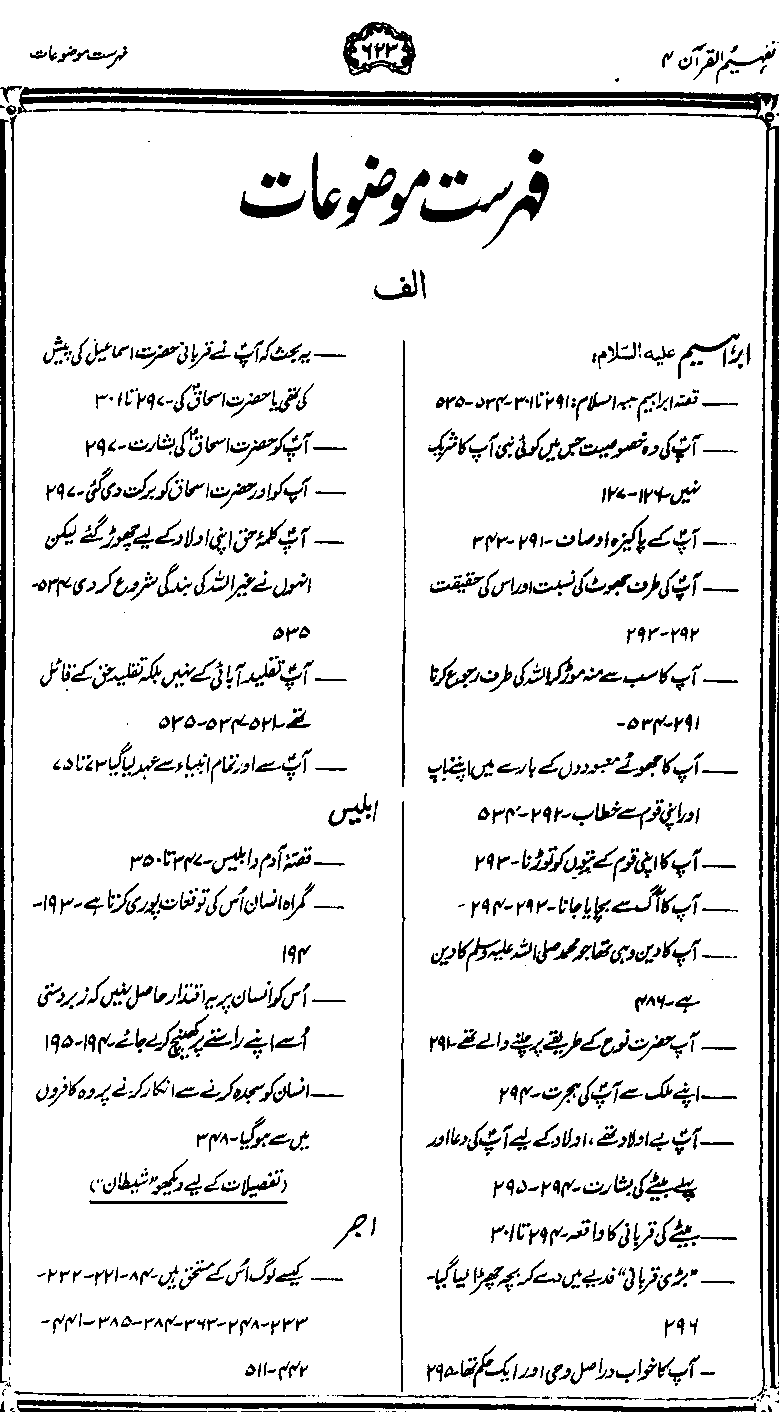 تفہیم القرآن ۴
۶۲۳
فہرست موضوعات
فہرست موضوعات
الف
ابراہیم علیہ السّلام:
— قصّہ ابراہیم علیہ السلام: ۲۹۱ تا ۳۰۱-۵۳۴-۵۳۵
— آپؑ کی وہ خصوصیت جس میں کوئی نبی آپ کا شریک
نہیں-۱۲۶-۱۲۷
— آپؑ کے پاکیزہ اوصاف-۲۹۱-۳۴۳
— آپؑ کی طرف جھوٹ کی نسبت اور اس کی حقیقت
۲۹۲-۲۹۳
— آپ کا سب سے منہ موڑ کر اللہ کی طرف رجوع کرنا
۲۹۱-۵۳۴-
— آپ کا جھوٹے معبودوں کے بارے میں اپنے باپ
اور اپنی قوم سے خطاب-۲۹۲-۵۳۴
— آپ کا اپنی قوم کے بتوں کو توڑنا-۲۹۳
— آپ کا آگ سے بچایا جانا-۲۹۳-۲۹۴-
— آپ کا دین وہی تھا جو محمد صلی اللہ علیہ وسلم کا دین
ہے-۴۸۶
— آپ حضرت نوح کے طریقے پر چلنے والے تھے-۲۹۱
— اپنے ملک سے آپؑ کی ہجرت-۲۹۴
— آپؑ بے اولاد تھے، اولاد کے لیے آپؑ کی دعا اور
پہلے بیٹے کی بشارت-۲۹۴-۲۹۵
— بیٹے کی قربانی کا واقعہ-۲۹۴ تا ۳۰۱
— "بڑی قربانی" فدیے میں دے کر بچہ چھڑا لیا گیا-
۲۹۶
— آپ کا خواب دراصل وحی اور ایک حکم تھا-۲۹۵
— یہ بحث کہ آپؑ نے قربانی حضرت اسماعیلؑ کی پیش
کی تھی یا حضرت اسحاقؑ کی-۲۹۷ تا ۳۰۱
— آپؑ کو حضرت اسحاقؑ کی بشارت-۲۹۷
— آپ کو اور حضرت اسحاق کو برکت دی گئی-۲۹۷
— آپؑ کلمۂ حق اپنی اولاد کے لیے چھوڑ گئے لیکن
انہوں نے غیر اللہ کی بندگی شروع کر دی-۵۳۴-
۵۳۵
— آپؑ تقلید آبائی کے نہیں بلکہ تقلید حق کے قائل
تھے-۵۲۱-۵۳۴-۵۳۵
— آپؑ سے اور تمام انبیاء سے عہد لیا گیا ۷۳ تا ۷۵
ابلیس
— قصّۂ آدم و ابلیس-۳۴۷ تا ۳۵۰
— گمراہ انسان اُس کی توقعات پوری کرتا ہے-۱۹۳-
۱۹۴
— اُس کو انسان پر یہ اقتدار حاصل نہیں کہ زبردستی
اُسے اپنے راستے پر کھینچ کر لے جائے-۱۹۴-۱۹۵
— انسان کو سجدہ کرنے سے انکار کرنے پر وہ کافروں
میں سے ہو گیا-۳۴۸
(تفصیلات کے لیے دیکھو "شیطان")
اجر
— کیسے لوگ اُس کے مستحق ہیں-۸۴-۲۲۱-۲۳۲-
۲۳۳-۲۴۸-۳۶۳-۳۸۴-۳۸۵-۴۴۱-
۴۴۲-۵۱۱